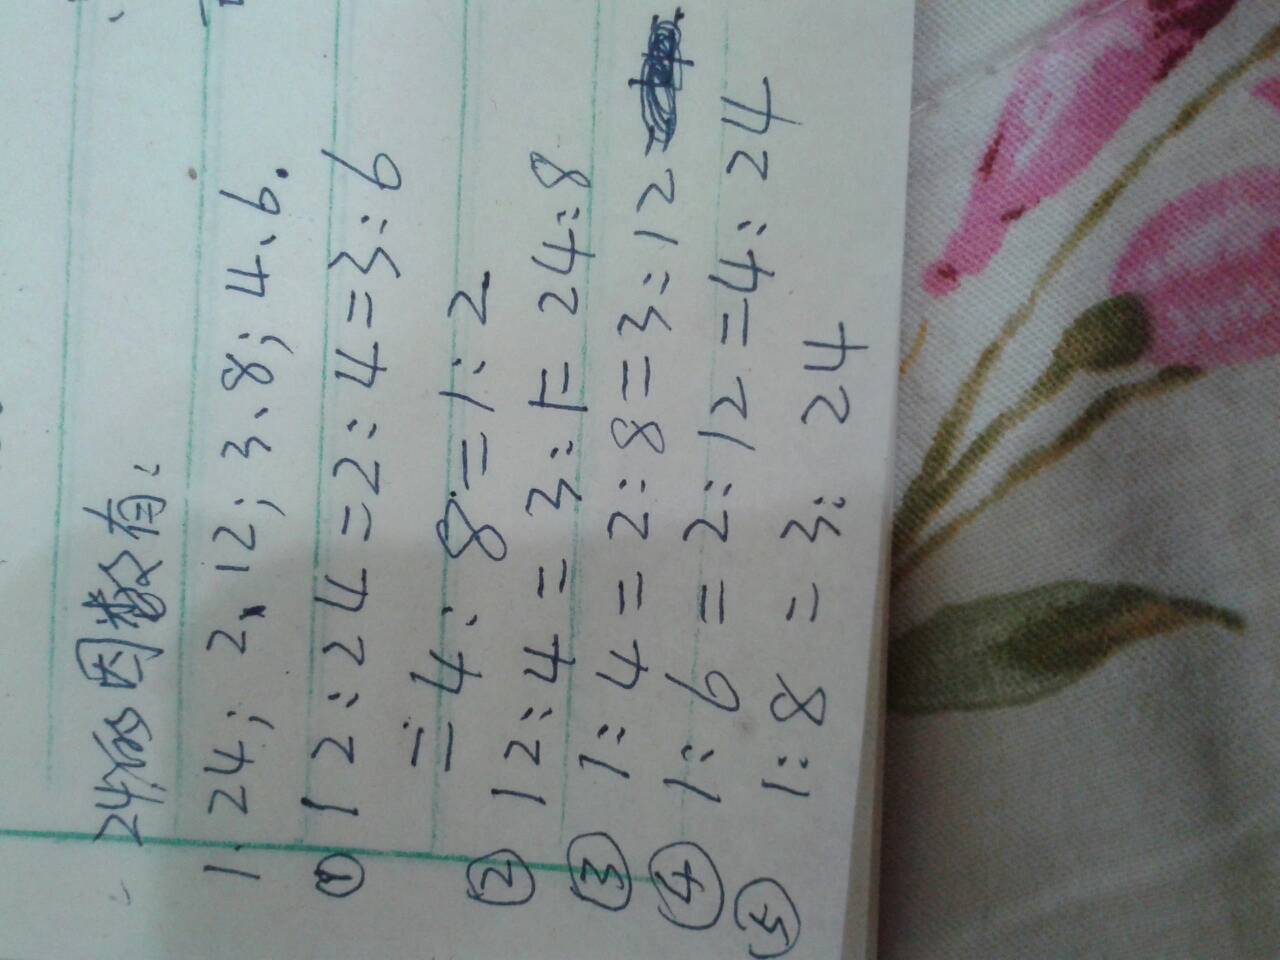 24的因数有:
1、24；2、12；3、8；4、6.
① 12:24=2:4=3:6
=4:8=1:2
② 12:4=3:1=24:8
③ 1:4=2:8=3:12
④ 1:6=2:12=4:24
⑤ 1:8=3:24